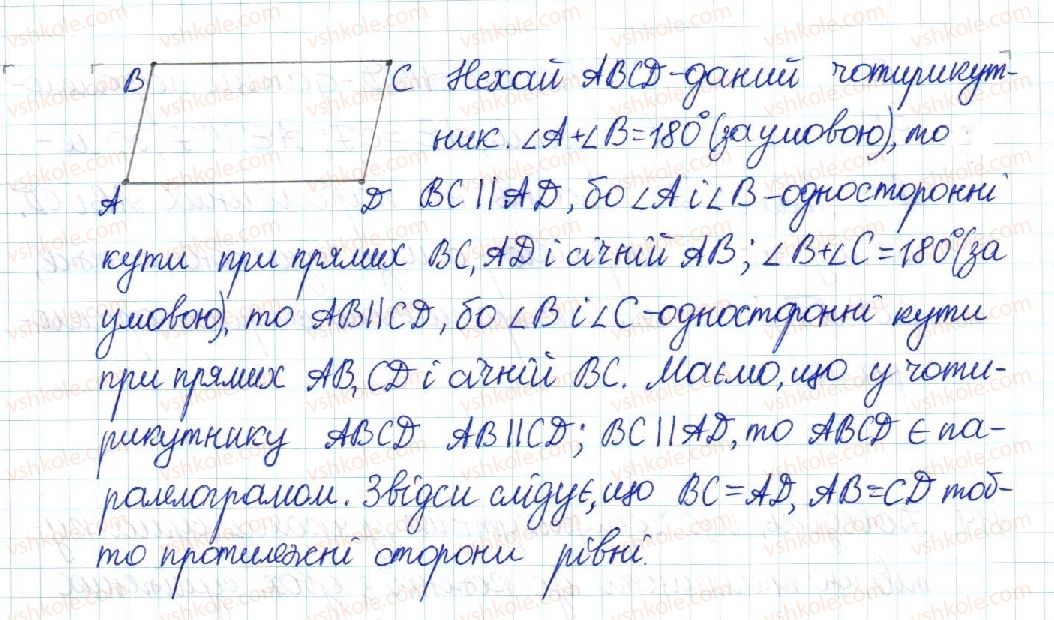 B C Нехай ABCD - даний чотирикут-
ник. ∠A+∠B=180° (за умовою), то
A D BC||AD, бо ∠A і ∠B - односторонні
кути при прямих BC, AD і січній AB; ∠B+∠C=180° (за
умовою), то AB||CD, бо ∠B і ∠C - односторонні кути
при прямих AB, CD і січній BC. Маємо, що у чоти-
рикутнику ABCD AB||CD; BC||AD, то ABCD є па-
ралелограмом. Звідси слідує, що BC=AD, AB=CD тоб-
то протилежні сторони рівні.
vshkole.com